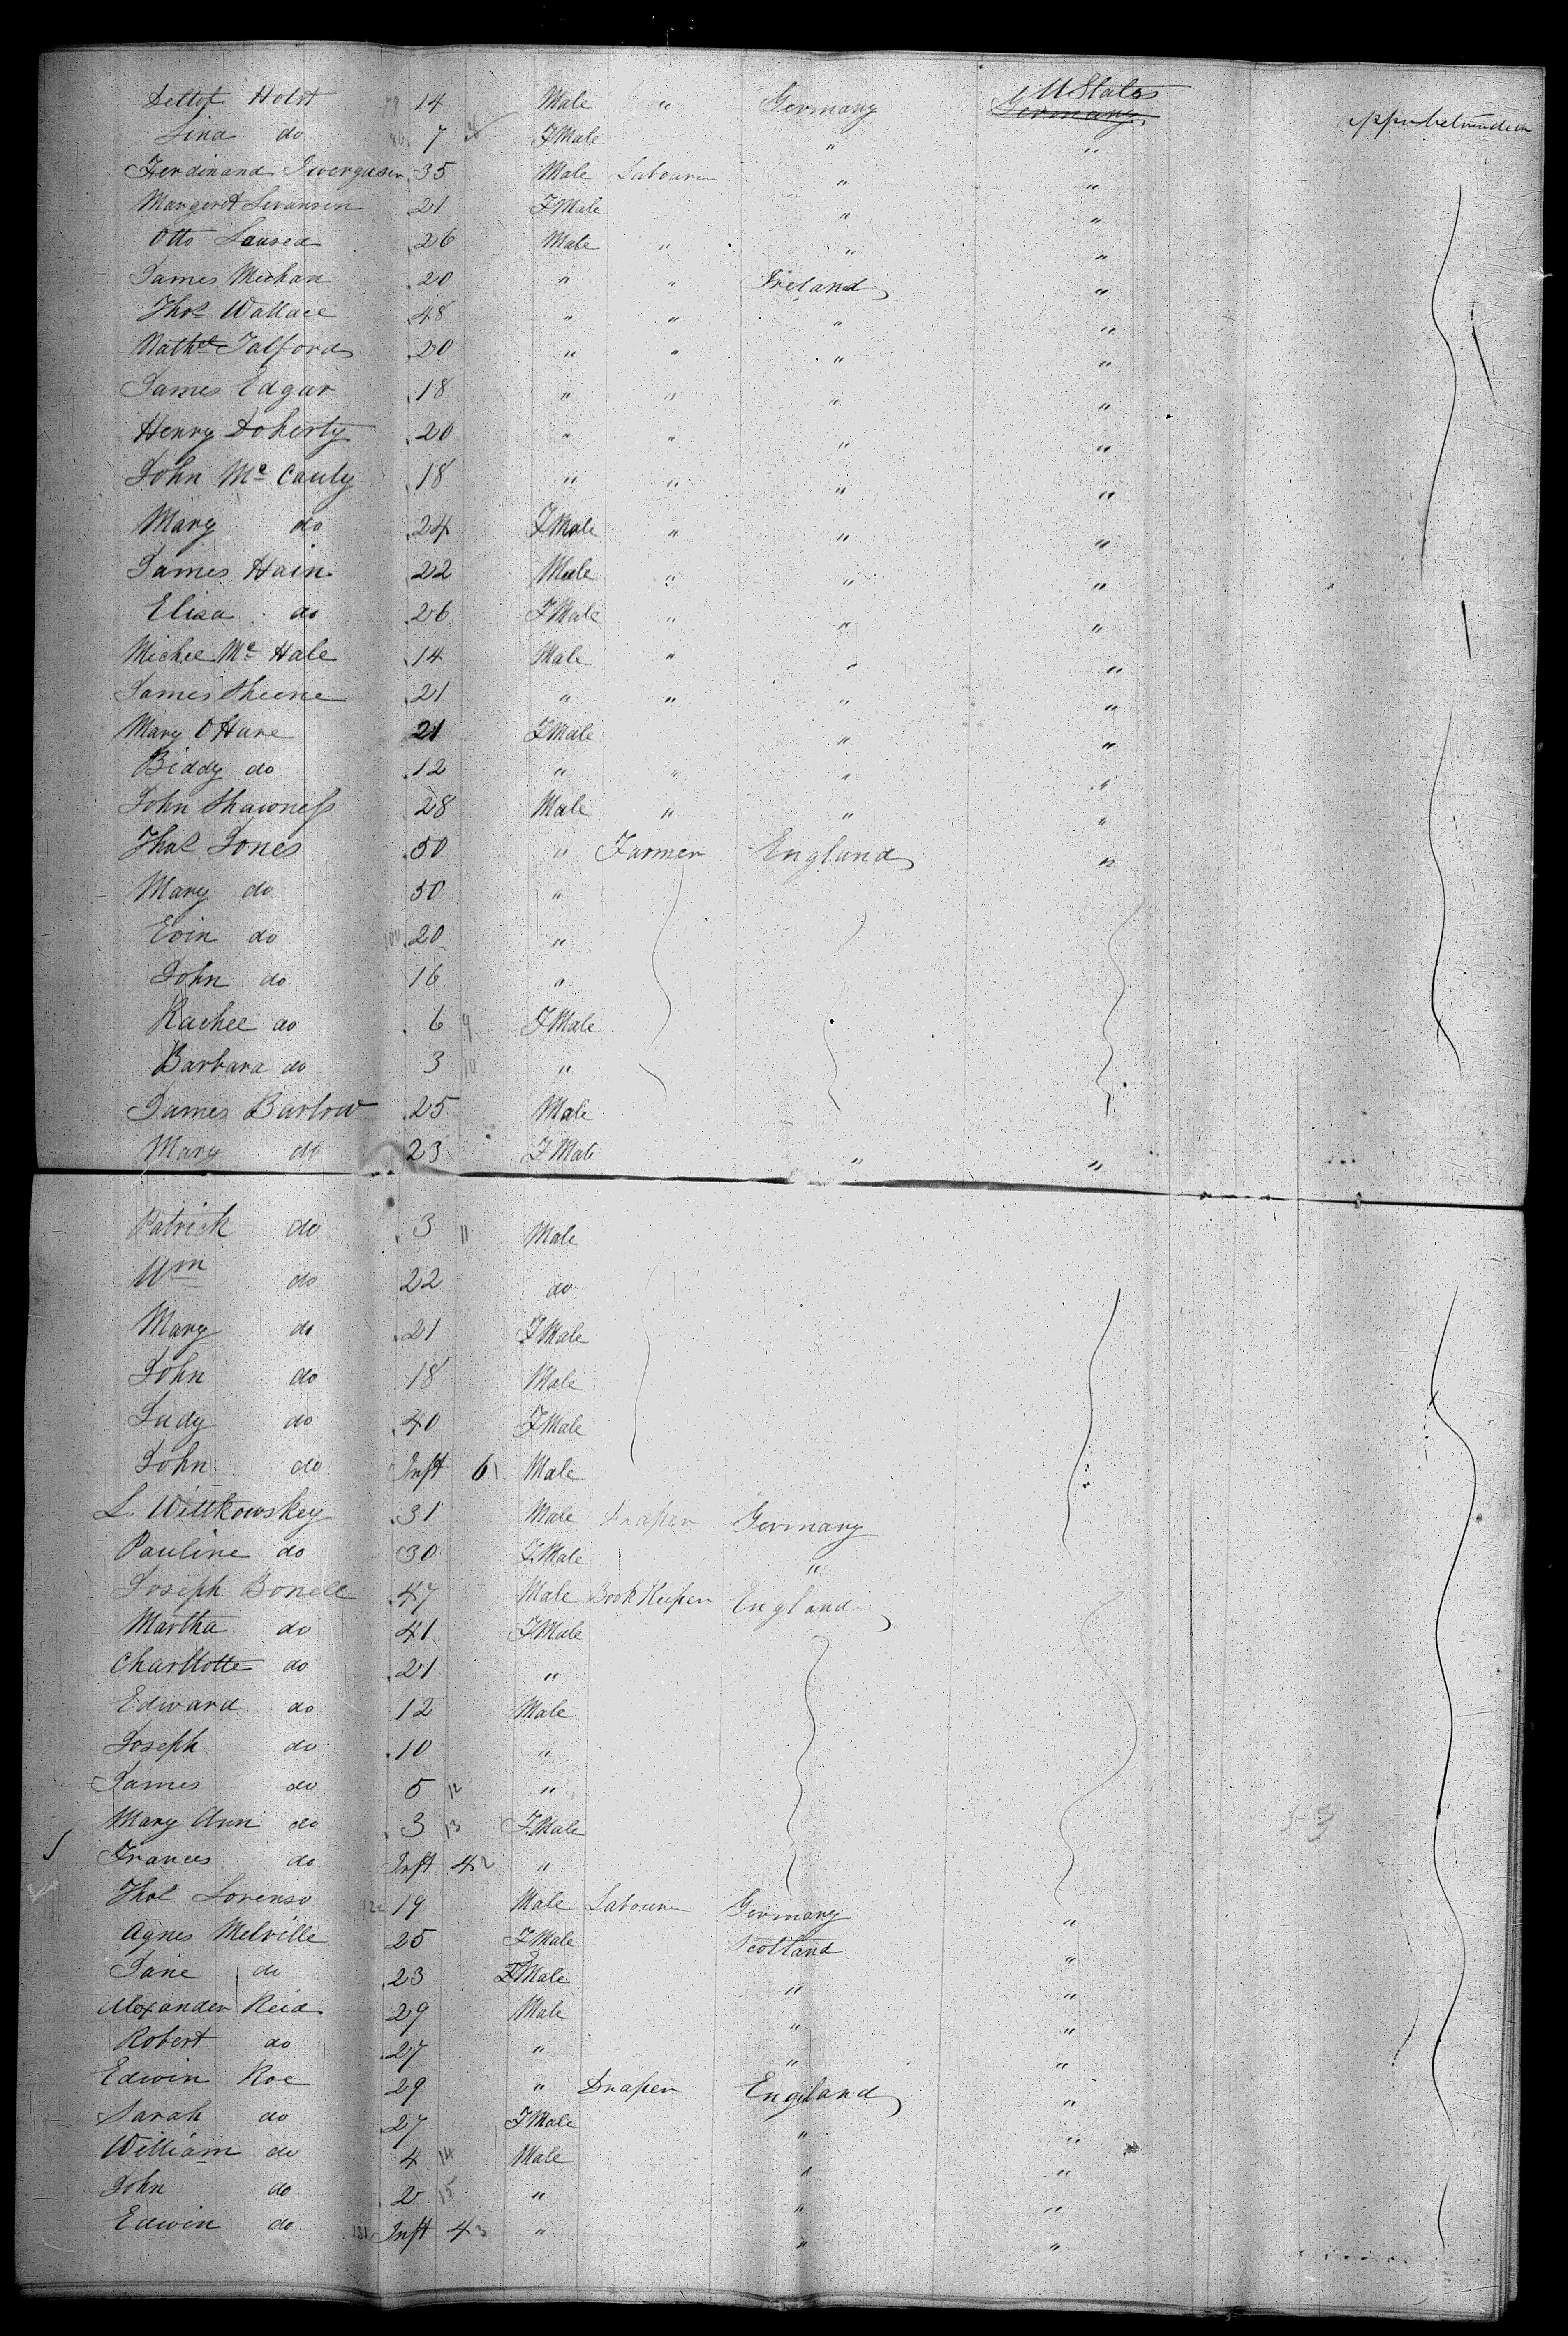 Dettof Holst 79 14 Male " Germany U States Germany
Lina do 80 7 FMale " "
Ferdinand Ivergusen 35 Male Labourer " "
Margeret Swansen 21 FMale " "
Otto Laused 26 Male " " "
James Meehan 20 " " Ireland "
Thos Wallace 48 " " " "
Nathel Talford 20 " " " "
James Edgar 18 " " " "
Henry Doherty 20 " " " "
John Mc Cauly 18 " " " "
Mary do 24 FMale " " "
James Hain 22 Male " " "
Eliza do 26 FMale " " "
Michel Mc Hale 14 Male " " "
James Sheene 21 " " " "
Mary O Hare 21 FMale " "
Biddy do 12 " " " "
John Shawness 28 Male " " "
Thos Jones 50 " Farmer England "
Mary do 50 "
Evin do 100 20 "
John do 16 "
Rachel do 6 9 FMale
Barbara do 3 10 "
James Barlow 25 Male
Mary do 23 FMale " "
Patrick do 3 11 Male
Wm do 22 do
Mary do 21 FMale
John do 18 Male
Judy do 40 FMale
John do Inft 61 Male
L. Wittkowskey 31 Male Draper Germany
Pauline do 30 FMale "
Joseph Bonell 47 Male Book Keeper England
Martha do 41 FMale
Charltotte do 21 "
Edward do 12 Male
Joseph do 10 "
James do 5 12 "
Mary Ann do 3 13 FMale
Frances do Inft 42 "
Thos Lorenso 122 19 Male Labourer Germany "
Agnes Melville 25 FMale Scotland "
Jane do 23 FMale " "
Alexander Reid 29 Male " "
Robert do 27 " " "
Edwin Roe 29 " Draper England "
Sarah do 27 FMale " "
William do 4 14 Male " "
John do 2 15 " " "
Edwin do 131 Inft 43 " " "